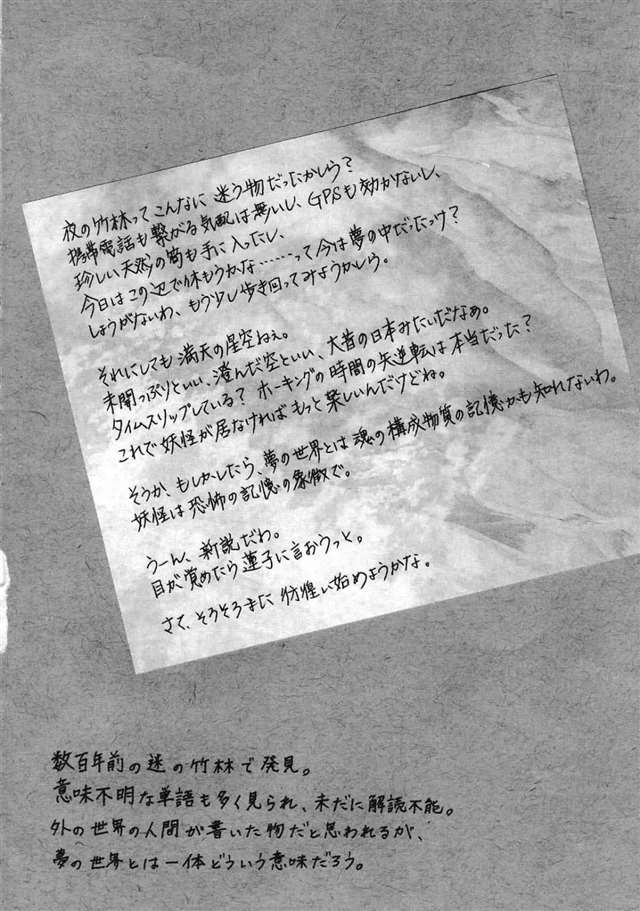 夜の竹林ってこんなに迷う物だったかしら?
携帯電話も繋がる気配は無いし、GPSも効かないし、
珍しい天然の筍も手に入ったし、
今日はこの辺で休もうかな………って今は夢の中だったっけ?
しょうがないわ、もう少し歩き回ってみようかしら。
それにしても満天の星空ねぇ。
未開っぷりといい、澄んだ空といい、大昔の日本みたいだなぁ。
タイムスリップしている?ホーキングの時間の矢逆転は本当だった?
これで妖怪が居なければもっと楽しいんだけどね。
そうか、もしかしたら、夢の世界とは魂の構成物質の記憶かも知れないわ。
妖怪は恐怖の記憶の象徴で。
うーん、新説だわ。
目が覚めたら蓮子に言おうっと。
さて、そろそろまた彷徨い始めようかな。
数百年前の迷の竹林で発見。
意味不明な単語も多く見られ、未だに解読不能。
外の世界の人間が書いた物だと思われるが、
夢の世界とは一体どういう意味だろう。